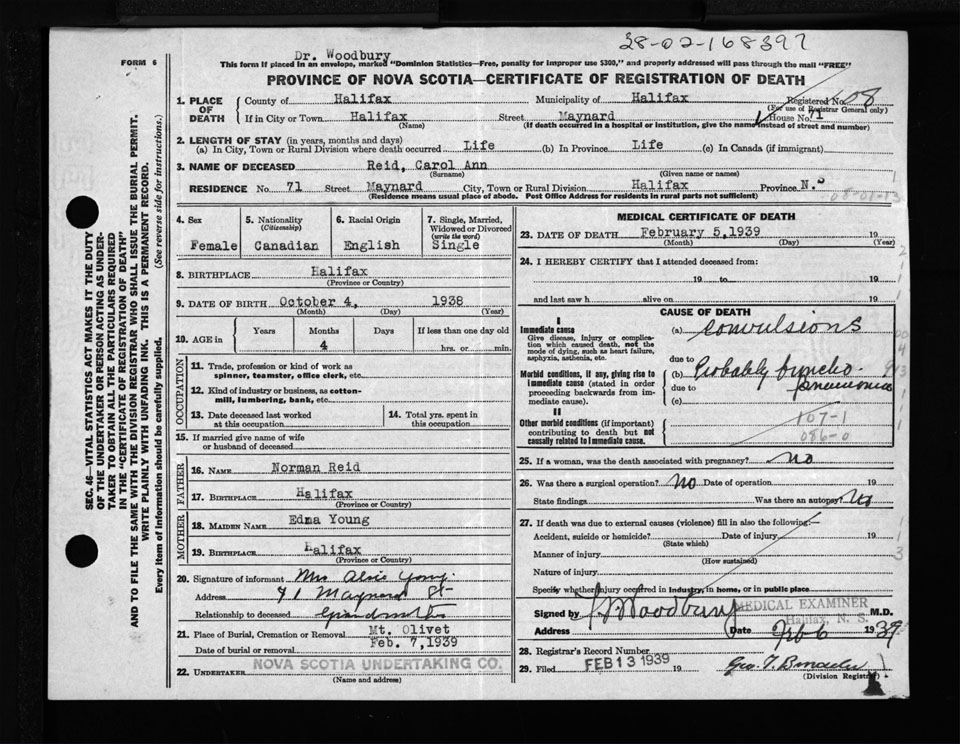 28-02-168397
FORM 6
Dr. Woodbury
This form if placed in an envelope, marked "Dominion Statistics—Free, penalty for improper use $300," and properly addressed will pass through the mail "FREE"
PROVINCE OF NOVA SCOTIA—CERTIFICATE OF REGISTRATION OF DEATH
SEC. 46—VITAL STATISTICS ACT MAKES IT THE DUTY
OF THE UNDERTAKER OR PERSON ACTING AS UNDER-
TAKER TO OBTAIN ALL THE PARTICULARS REQUIRED
IN THE "CERTIFICATE OF REGISTRATION OF DEATH"
AND TO FILE THE SAME WITH THE DIVISION REGISTRAR WHO SHALL ISSUE THE BURIAL PERMIT.
WRITE PLAINLY WITH UNFADING INK. THIS IS A PERMANENT RECORD.
Every item of information should be carefully supplied. (See reverse side for instructions.)
1. PLACE OF DEATH
County of Halifax Municipality of Halifax Registered No. 608
(For use of Registrar General only)
If in City or Town Halifax Street Maynard House No. 71
(Name) (If death occurred in a hospital or institution, give the name instead of street and number)
2. LENGTH OF STAY (in years, months and days)
(a) In City, Town or Rural Division where death occurred Life (b) In Province Life (c) In Canada (if immigrant)
3. NAME OF DECEASED Reid, Carol Ann
(Surname) (Given name or names)
RESIDENCE No. 71 Street Maynard City, Town or Rural Division Halifax Province N.S
(Residence means usual place of abode. Post Office Address for residents in rural parts not sufficient)
4. Sex
Female
5. Nationality
(Citizenship)
Canadian
6. Racial Origin
English
7. Single, Married,
Widowed or Divorced
(write the word)
Single
8. BIRTHPLACE Halifax
(Province or Country)
9. DATE OF BIRTH October 4, 1938
(Month) (Day) (Year)
10. AGE in Years Months Days If less than one day old
4 hrs. or min.
OCCUPATION
11. Trade, profession or kind of work as
spinner, teamster, office clerk, etc.
12. Kind of industry or business, as cotton-
mill, lumbering, bank, etc.
13. Date deceased last worked
at this occupation
14. Total yrs. spent in
this occupation
15. If married give name of wife
or husband of deceased
FATHER
16. NAME Norman Reid
17. BIRTHPLACE Halifax
(Province or Country)
MOTHER
18. MAIDEN NAME Edna Young
19. BIRTHPLACE Halifax
(Province or Country)
20. Signature of informant Mrs Alice Young
Address 71 Maynard St
Relationship to deceased Grandmother
21. Place of Burial, Cremation or Removal Mt. Olivet
Date of burial or removal Feb. 7, 1939
22. UNDERTAKER NOVA SCOTIA UNDERTAKING CO.
(Name and address)
MEDICAL CERTIFICATE OF DEATH
23. DATE OF DEATH February 5, 1939 19
(Month) (Day) (Year)
24. I HEREBY CERTIFY that I attended deceased from:
19 to 19
and last saw h alive on 19
CAUSE OF DEATH
I
Immediate cause
Give disease, injury or complica-
tion which caused death, not the
mode of dying, such as heart failure,
asphyxia, asthenia, etc.
(a) Convulsions
due to
Morbid conditions, if any, giving rise to
immediate cause (stated in order
proceeding backwards from im-
mediate cause).
(b) Probably broncho-
due to pneumonia
(c)
II
Other morbid conditions (if important)
contributing to death but not
causally related to immediate cause.
107-1
086-0
25. If a woman, was the death associated with pregnancy? No
26. Was there a surgical operation? No Date of operation 19
State findings Was there an autopsy? No
27. If death was due to external causes (violence) fill in also the following:—
Accident, suicide or homicide? Date of injury 19
(State which)
Manner of injury
(How sustained)
Nature of injury
Specify whether injury occurred in industry, in home, or in public place
Signed by Woodbury M.D.
MEDICAL EXAMINER
Halifax, N. S.
Address Date Feb 6 1939
28. Registrar's Record Number
29. Filed FEB 13 1939 19
(Division Registrar)